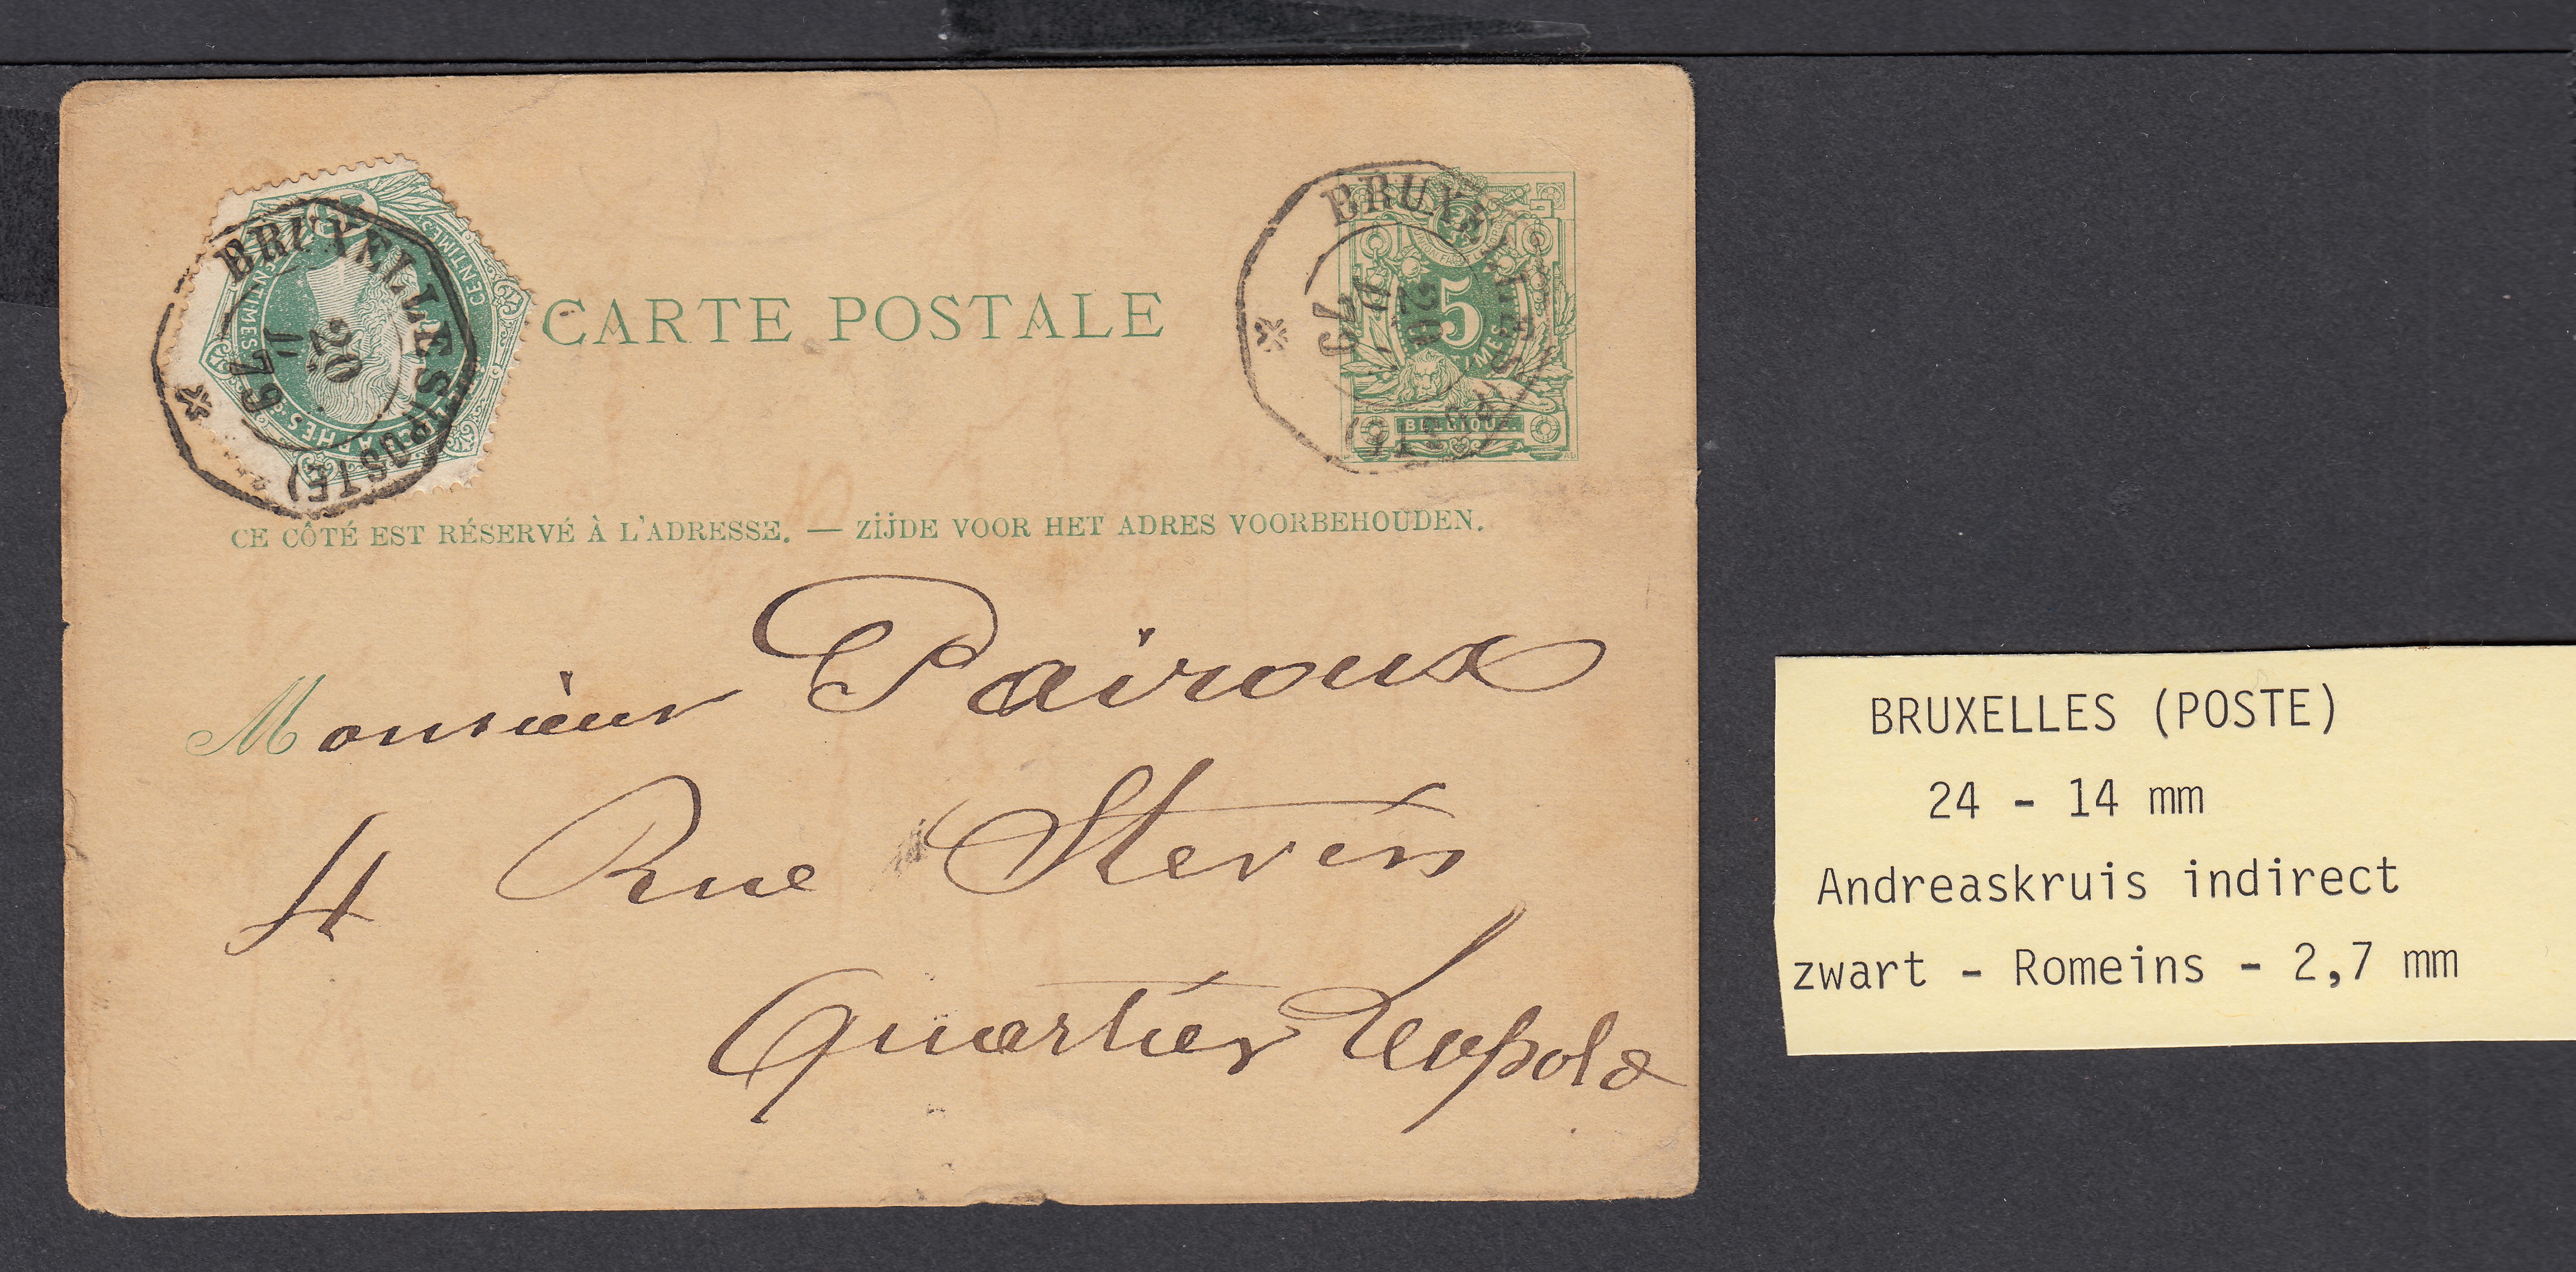 BRUXELLES (POSTE)
20
79
CENTIMES
CENTIMES
CARTE POSTALE
BRUXELLES (POSTE)
20
79
5
BELGIQUE.
CE CÔTÉ EST RÉSERVÉ À L'ADRESSE. — ZIJDE VOOR HET ADRES VOORBEHOUDEN.
Monsieur Pairoux
4 Rue Stevin
Quartier Leopold
BRUXELLES (POSTE)
24 - 14 mm
Andreaskruis indirect
zwart - Romeins - 2,7 mm